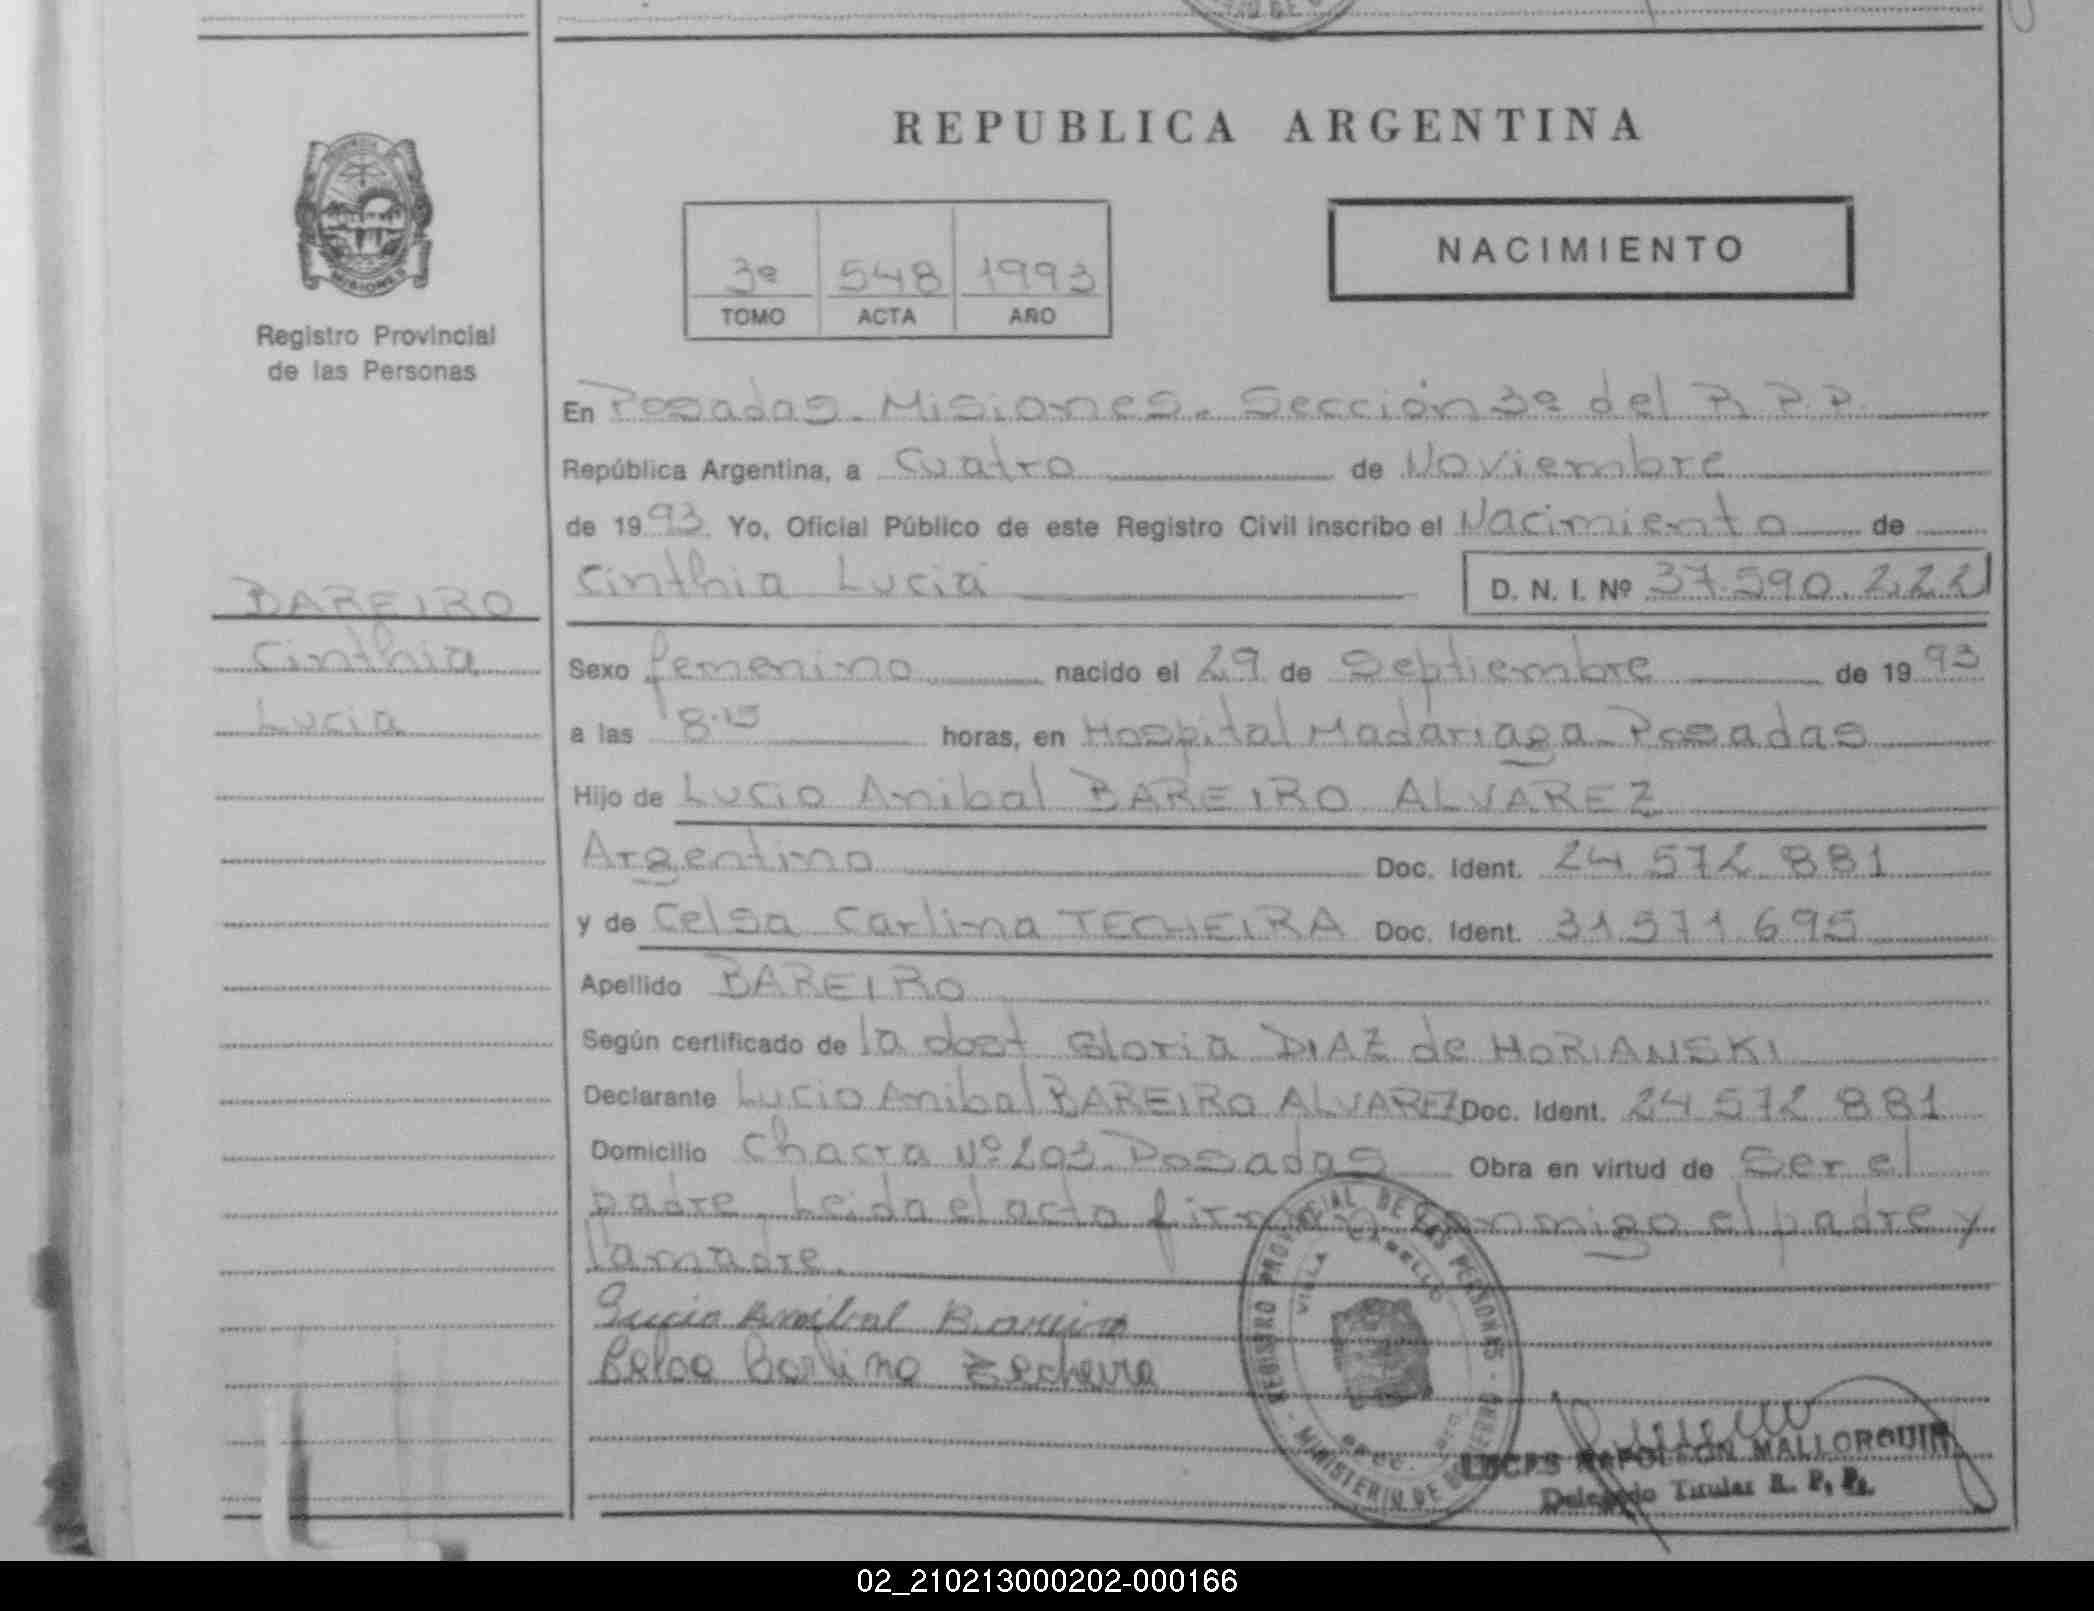 REPUBLICA ARGENTINA
NACIMIENTO
3º 548 1993
TOMO ACTA AÑO
MISIONES
Registro Provincial
de las Personas
En Posadas. Misiones. Sección 3º del R.P.P.
República Argentina, a Cuatro de Noviembre
de 1993 Yo, Oficial Público de este Registro Civil inscribo el Nacimiento de
Cinthia Lucia D. N. I. Nº 37.590.222
BAREIRO
Cinthia
Lucia
Sexo femenino nacido el 29 de Septiembre de 1993
a las 8.15 horas, en Hospital Madariaga Posadas
Hijo de Lucio Anibal BAREIRO ALVAREZ
Argentino Doc. Ident. 24 572 881
y de Celsa Carlina TECHEIRA Doc. Ident. 31 571 695
Apellido BAREIRO
Según certificado de la doct Gloria DIAZ de HORIANSKI
Declarante Lucio Anibal BAREIRO ALVAREZ Doc. Ident. 24 572 881
Domicilio Chacra Nº 203 Posadas Obra en virtud de Ser el
padre. Leida el acta firman conmigo el padre y
la madre.
Lucio Anibal Bareiro
Celsa Carlina Techeira
REGISTRO PROVINCIAL DE LAS PERSONAS - MINISTERIO DE GOBIERNO
VILLA CABELLO
LUCAS NAPOLEON MALLORQUIN
Delegado Titular R. P. P.
02_210213000202-000166